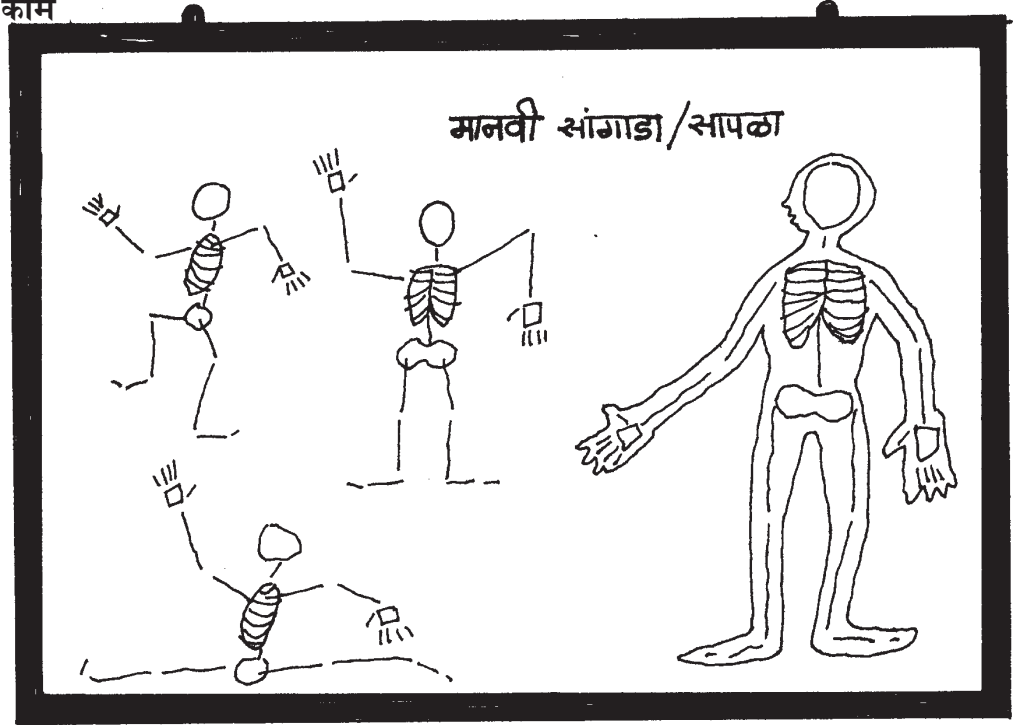 काम
मानवी सांगाडा/सापळा